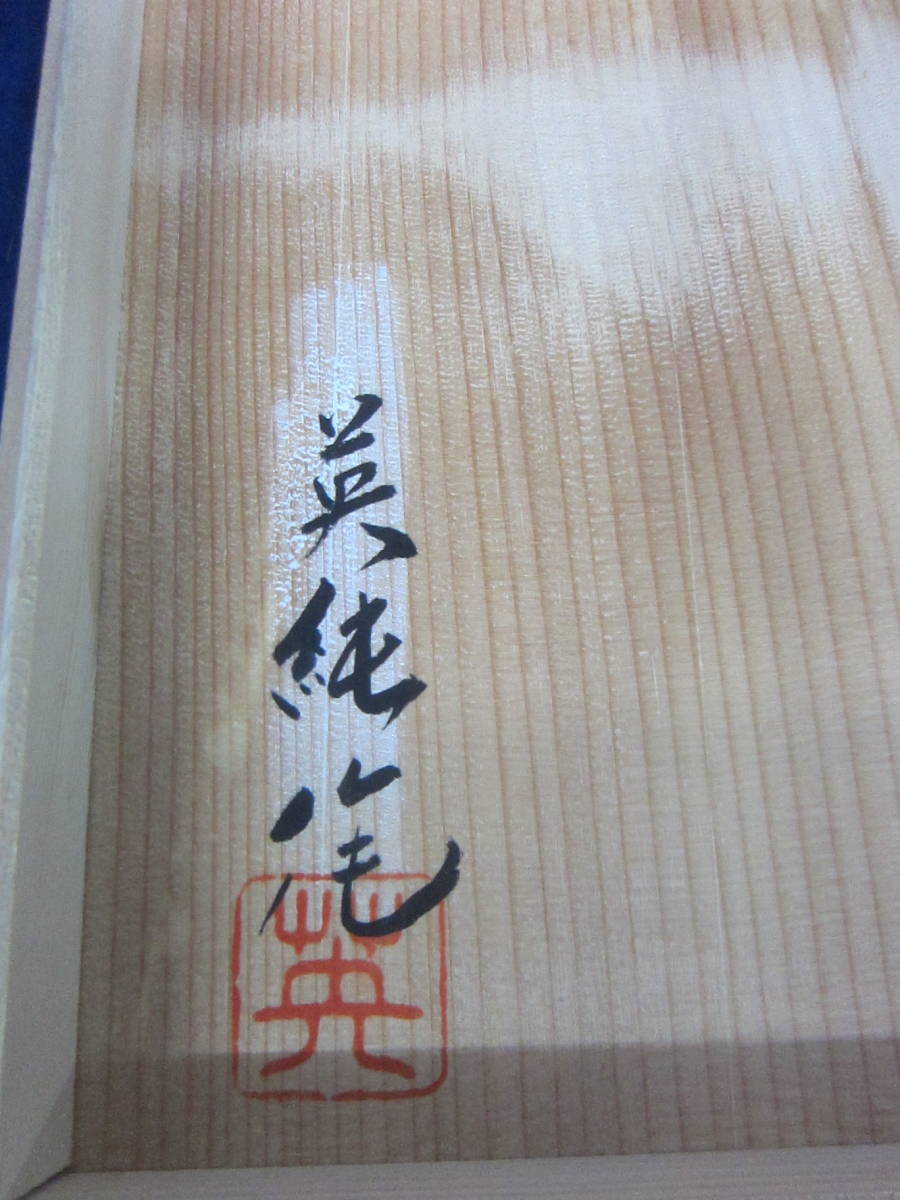 英純作
英